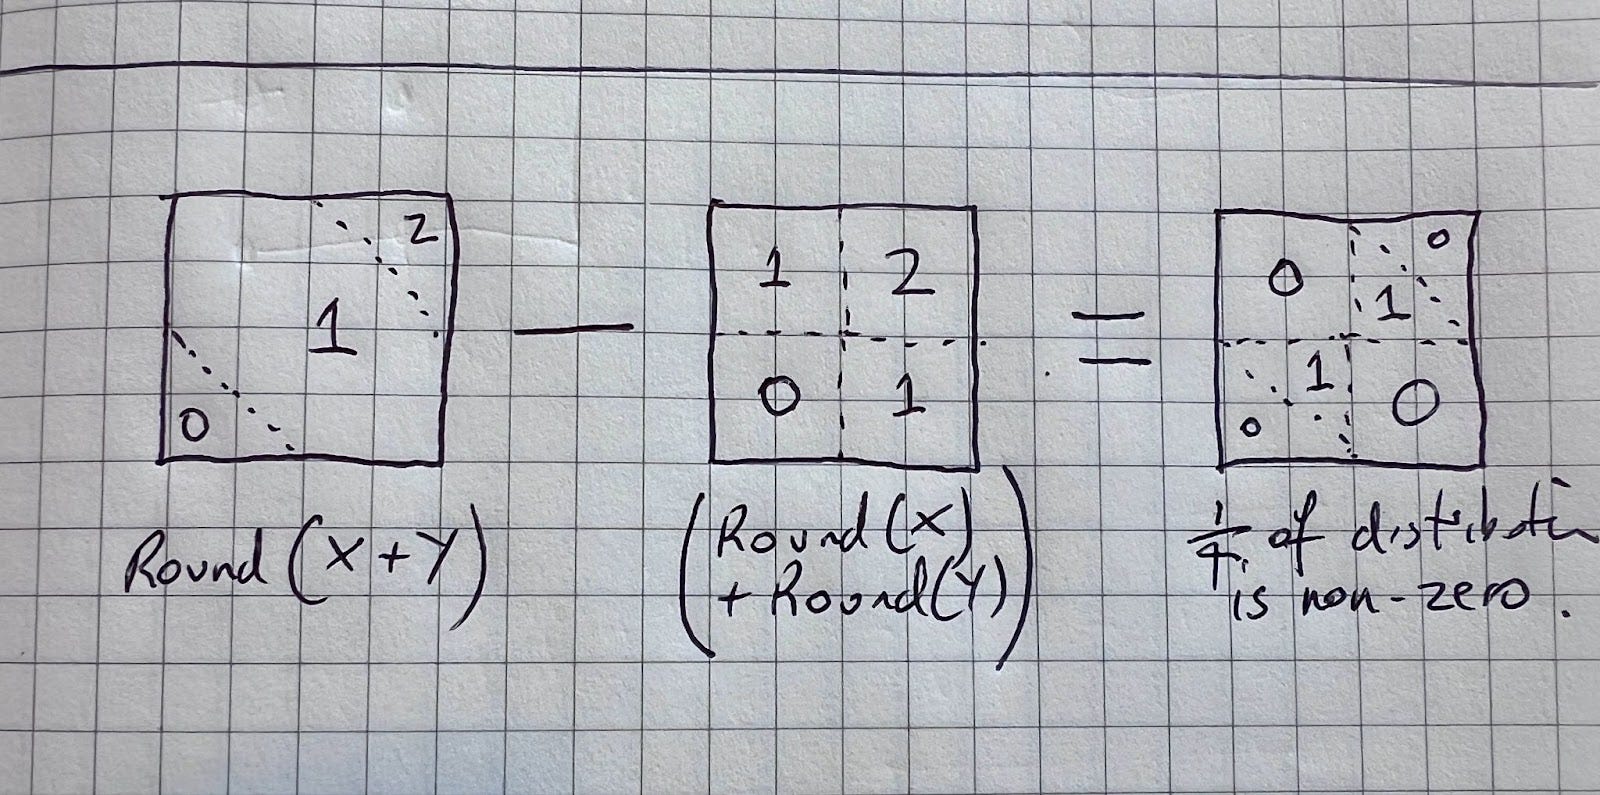 2
1
0
—
1 2
0 1
=
0 0
1
1
0 0
Round (X + Y)
(Round (X)
+ Round (Y))
1/4 of distributin
is non-zero.